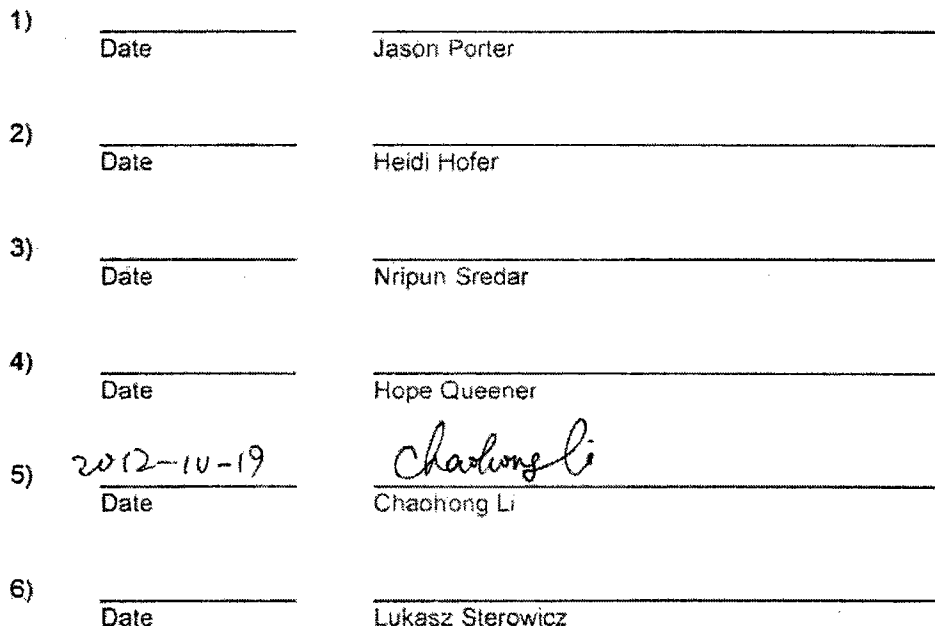 1)
Date Jason Porter
2)
Date Heidi Hofer
3)
Date Nripun Sredar
4)
Date Hope Queener
5) 2012-10-19 Chaohong Li
Date Chaohong Li
6)
Date Lukasz Sterowicz